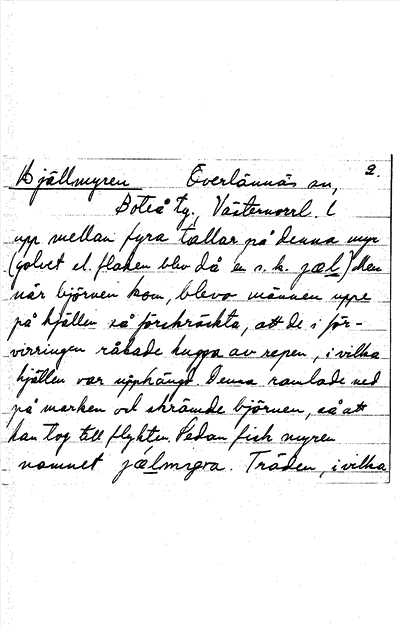 Hjällmyren Överlännäs sn, 2.
Boteå tg., Västernorrl. l
upp mellan fyra tallar på denna myr
(golvet el. flaken blev då en s.k. jæl) Men
när björnen kom, blevo männen uppe
på hjällen så förskräckta, att de i för-
virringen råkade hugga av repen, i vilka
hjällen var upphängd. Denna ramlade ned
på marken och skrämde björnen, så att
han tog till flykten. Sedan fick myren
namnet jǽlmyra. Träden, i vilka